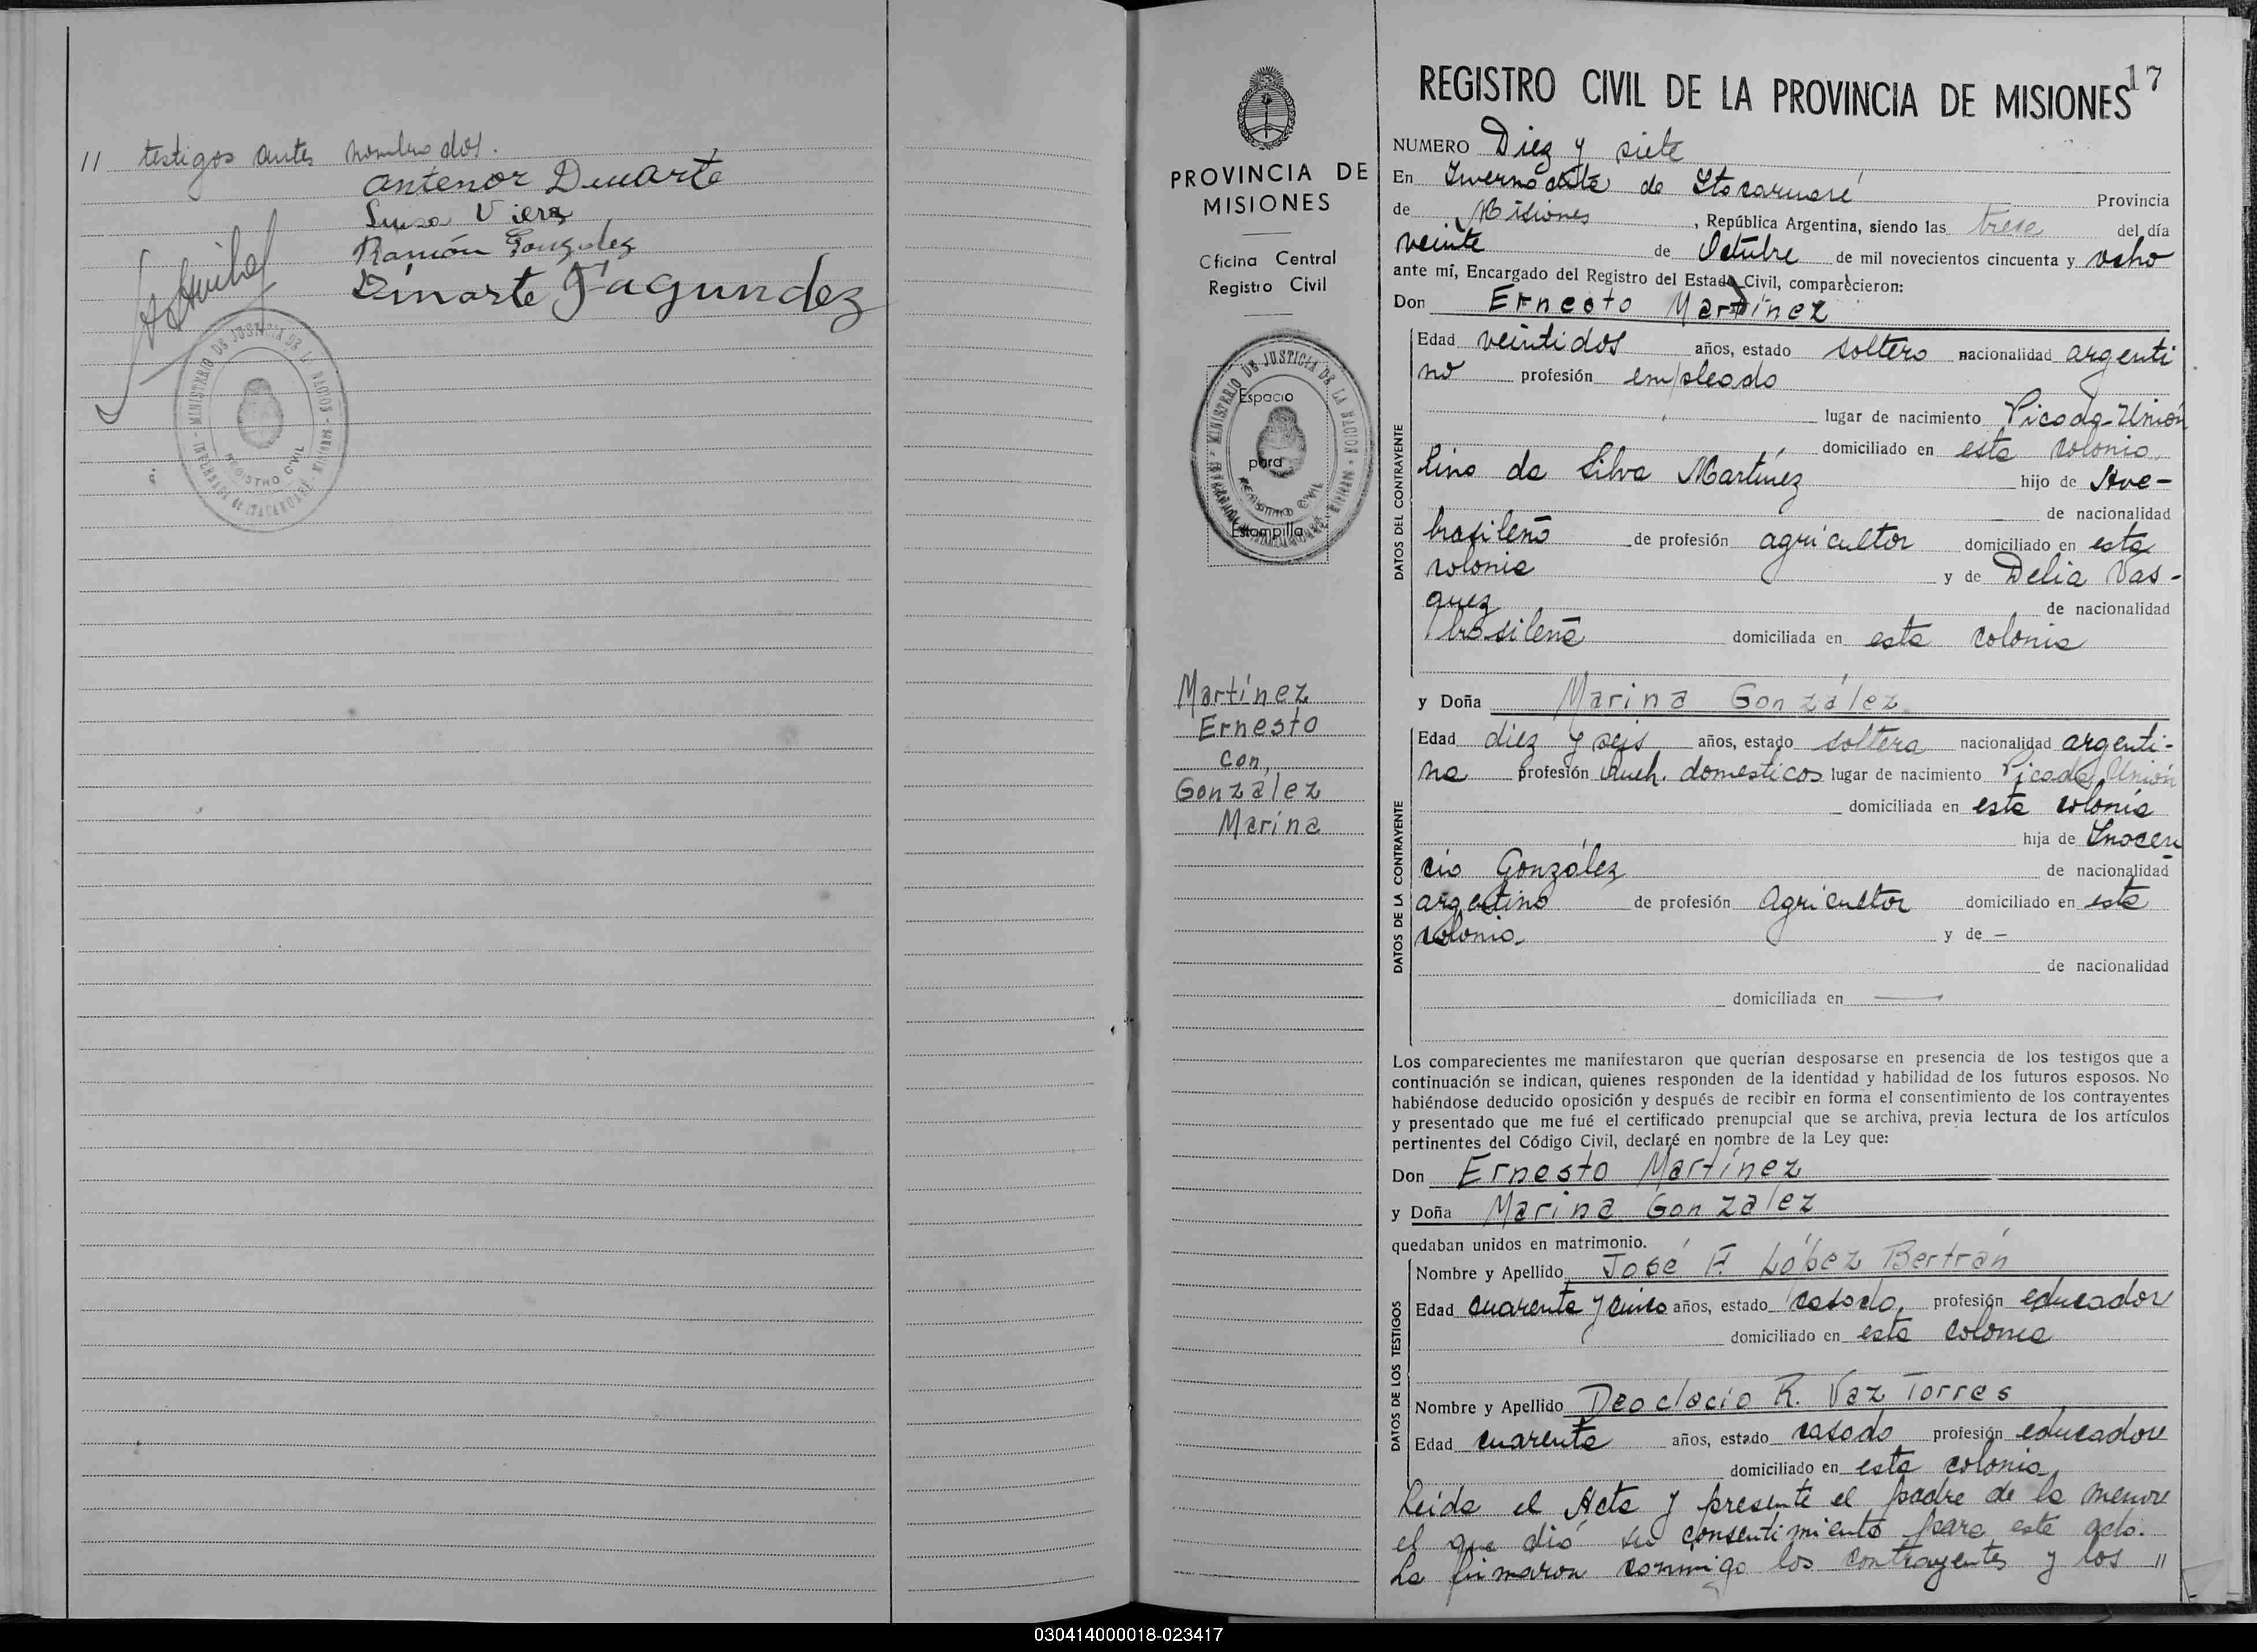 // testigos antes nombrados.
Antenor Duarte
Luisa Viera
Ramón González
Dinarte Fagundez
MINISTERIO DE JUSTICIA DE LA NACION
REGISTRO CIVIL
PROVINCIA DE
MISIONES
Oficina Central
Registro Civil
MINISTERIO DE JUSTICIA DE LA NACION
REGISTRO CIVIL
Espacio
para
Estampilla
Martínez
Ernesto
con,
González
Marina
17
REGISTRO CIVIL DE LA PROVINCIA DE MISIONES
NUMERO Diez y siete
En Invernada de Itacaruaré Provincia
de Misiones, República Argentina, siendo las trece del día
veinte de Octubre de mil novecientos cincuenta y ocho
ante mí, Encargado del Registro del Estado Civil, comparecieron:
Don Ernesto Martínez
DATOS DEL CONTRAYENTE
Edad veintidos años, estado soltero nacionalidad argenti
no profesión empleado
lugar de nacimiento Picada Unión
domiciliado en esta colonia
lino da Silva Martínez hijo de Ave-
de nacionalidad
brasileño de profesión agricultor domiciliado en esta
colonia y de Delia Vas-
quez de nacionalidad
brasileña domiciliada en esta colonia
y Doña Marina González
DATOS DE LA CONTRAYENTE
Edad diez y seis años, estado soltera nacionalidad argenti-
na profesión queh. domesticos lugar de nacimiento Picada Unión
domiciliada en esta colonia
hija de Inocen
cio González de nacionalidad
argentino de profesión agricultor domiciliado en esta
colonia y de —
de nacionalidad
domiciliada en —
Los comparecientes me manifestaron que querían desposarse en presencia de los testigos que a
continuación se indican, quienes responden de la identidad y habilidad de los futuros esposos. No
habiéndose deducido oposición y después de recibir en forma el consentimiento de los contrayentes
y presentado que me fué el certificado prenupcial que se archiva, previa lectura de los artículos
pertinentes del Código Civil, declaré en nombre de la Ley que:
Don Ernesto Martínez
y Doña Marina Gonzalez
quedaban unidos en matrimonio.
DATOS DE LOS TESTIGOS
Nombre y Apellido José F. López Bertrán
Edad cuarenta y cinco años, estado casado, profesión educador
domiciliado en esta colonia
Nombre y Apellido Deoclacio R. Vaz Torres
Edad cuarenta años, estado casado profesión educador
domiciliado en esta colonia
Leida el Acta y presente el padre de la menor
el que dió su consentimiento para este acto.
La firmaron conmigo los contrayentes y los //
030414000018-023417